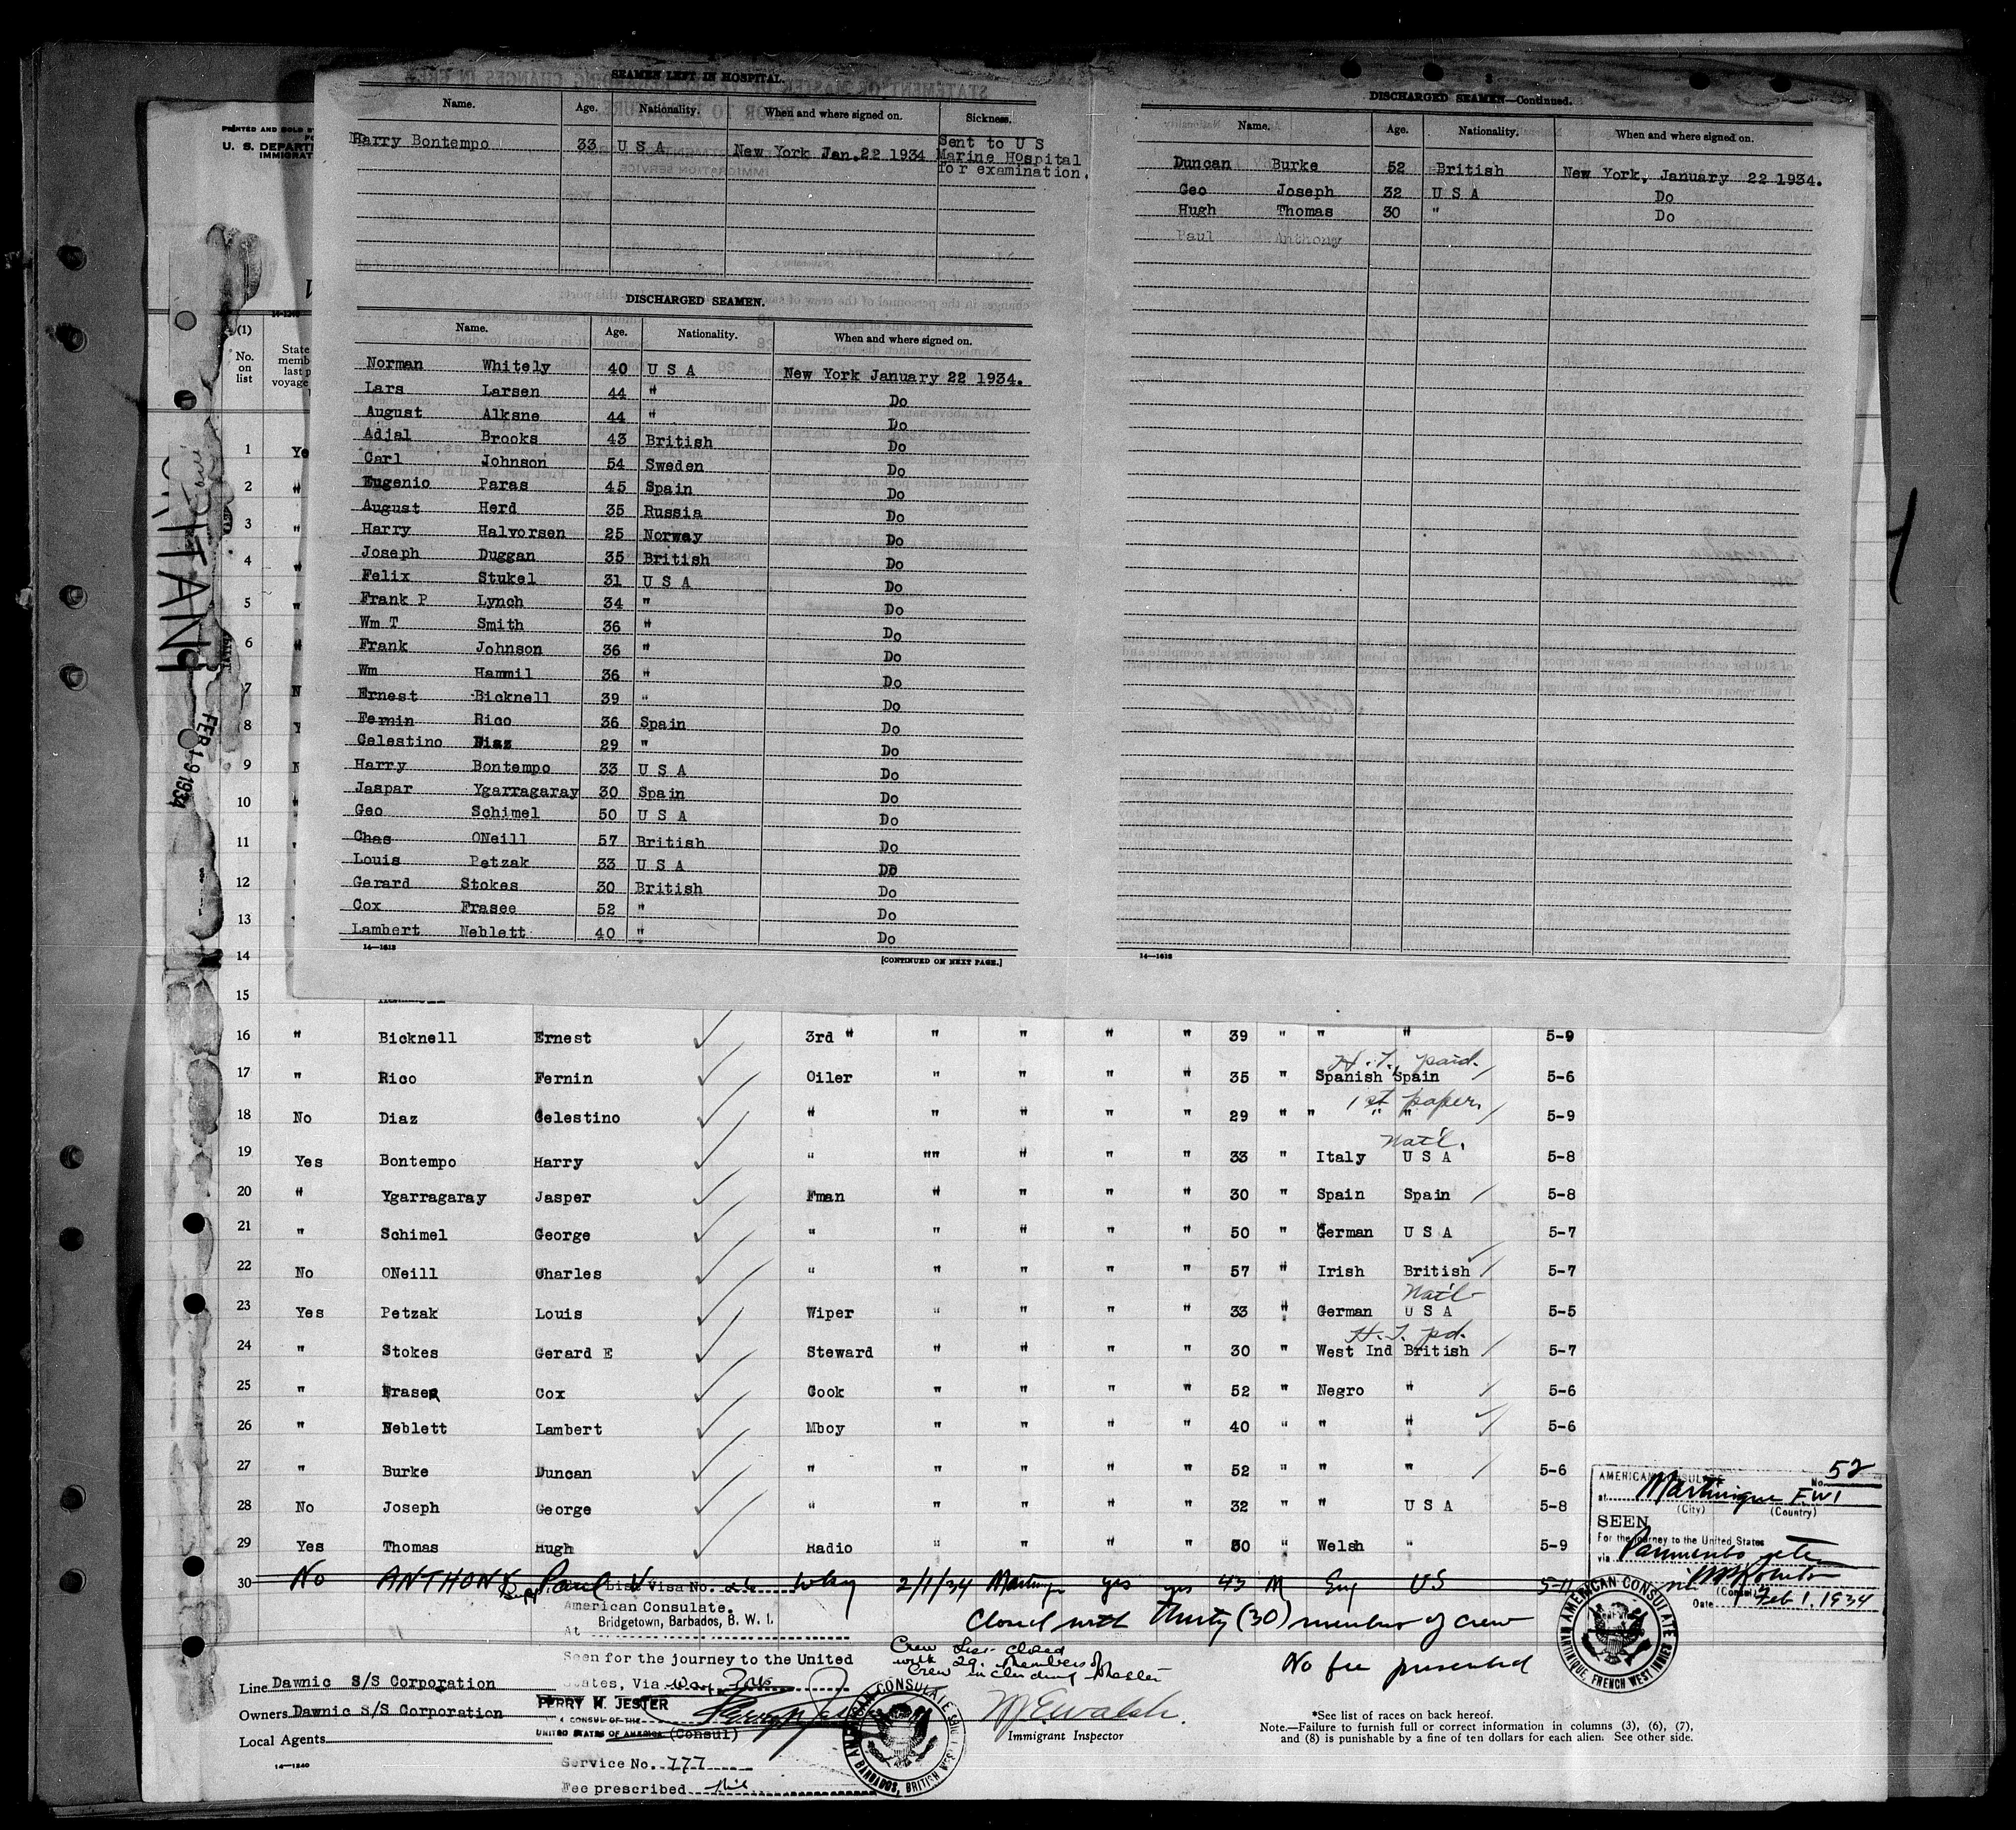 SEAMEN LEFT IN HOSPITAL.
Name. Age. Nationality. When and where signed on. Sickness.
Harry Bontempo 33 U S A New York Jan. 22 1934 Sent to U S
Marine Hospital
for examination.
DISCHARGED SEAMEN.
Name. Age. Nationality. When and where signed on.
Norman Whitely 40 U S A New York January 22 1934.
Lars Larsen 44 " Do
August Alksne 44 " Do
Adjal Brooks 43 British Do
Carl Johnson 54 Sweden Do
Eugenio Paras 45 Spain Do
August Herd 35 Russia Do
Harry Halvorsen 25 Norway Do
Joseph Duggan 35 British Do
Felix Stukel 31 U S A Do
Frank P Lynch 34 " Do
Wm T Smith 36 " Do
Frank Johnson 36 " Do
Wm Hammil 36 " Do
Ernest Bicknell 39 " Do
Fernin Rico 36 Spain Do
Celestino Diaz 29 " Do
Harry Bontempo 33 U S A Do
Jaspar Ygarragaray 30 Spain Do
Geo Schimel 50 U S A Do
Chas ONeill 57 British Do
Louis Petzak 33 U S A Do
Gerard Stokes 30 British Do
Cox Frasee 52 " Do
Lambert Neblett 40 " Do
14—1613 [CONTINUED ON NEXT PAGE.]
3
DISCHARGED SEAMEN—Continued.
Name. Age. Nationality. When and where signed on.
Duncan Burke 52 British New York, January 22 1934.
Geo Joseph 32 U S A Do
Hugh Thomas 30 " Do
Paul Anthony
14—1613
PRINTED AND SOLD B
U. S. DEPARTM
IMMIGRAT
14-1240
(1)
No. on list
State
memb
last p
voyage
FEB 19 1934
1 Ye
2 "
3 "
4 "
5 "
6 "
7 N
8 Y
9 N
10 "
11
12
13
14
15
16 " Bicknell Ernest 3rd " " " " " 39 " " " 5-9
H.T. paid.
17 " Rico Fernin Oiler " " " " 35 " Spanish Spain 5-6
1st papers
18 No Diaz Celestino " " " " " 29 " " " " 5-9
Nat'l.
19 Yes Bontempo Harry " "" " " " 33 " Italy U S A 5-8
20 " Ygarragaray Jasper Fman " " " " 30 " Spain Spain 5-8
21 " Schimel George " " " " " 50 " German U S A 5-7
22 No ONeill Charles " " " " " 57 " Irish British 5-7
Nat'l
23 Yes Petzak Louis Wiper " " " 33 " German U S A 5-5
H.T. pd.
24 " Stokes Gerard E Steward " " " " 30 " West Ind British 5-7
25 " Fraser Cox Cook " " " " 52 " Negro " 5-6
26 " Neblett Lambert Mboy " " " " 40 " " " 5-6
27 " Burke Duncan " " " " " 52 " " " 5-6
28 No Joseph George " " " " " 32 " " U S A 5-8
29 Yes Thomas Hugh Radio " " " " 30 " Welsh " 5-9
30 No ANTHONY Paul V Wkay 2/1/34 Martinique yes yes 43 M Eng US 5-11
List Visa No.
American Consulate.
Bridgetown, Barbados, B. W. I.
At
Closed with Thirty (30) members of crew
No fee prescribed
Crew List closed
with 29 members of
Crew including Master
Seen for the journey to the United
States, Via
PERRY N. JESTER
CONSUL OF THE
UNITED STATES OF AMERICA (Consul)
Service No. 777
Fee prescribed nil
AMERICAN CONSULATE
BARBADOS, BRITISH WEST INDIES
Immigrant Inspector
Line Dawnic S/S Corporation
Owners Dawnic S/S Corporation
Local Agents
14—1240
AMERICAN CONSULATE No. 52
at Martinique F.W.I
(City) (Country)
SEEN
For the journey to the United States
via
(Consul)
Date Feb 1, 1934
AMERICAN CONSULATE
MARTINIQUE, FRENCH WEST INDIES
*See list of races on back hereof.
Note.—Failure to furnish full or correct information in columns (3), (6), (7),
and (8) is punishable by a fine of ten dollars for each alien. See other side.